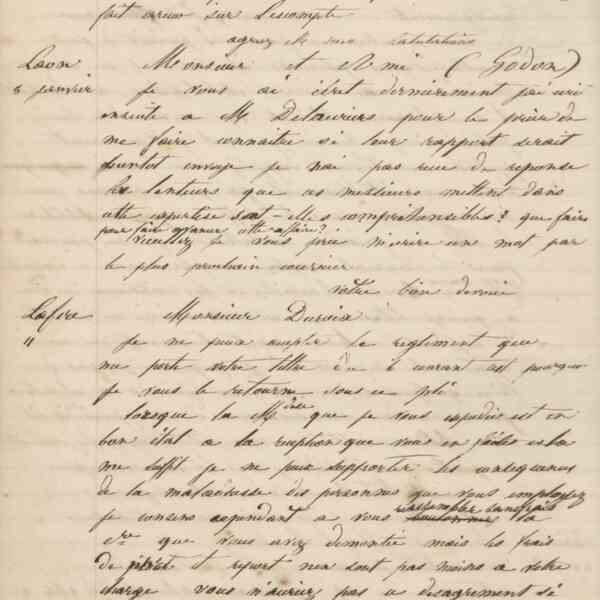 fait erreur sur l'escompte
agréez M mes salutations
Laon Monsieur et Ami (Godon)
6 janvier Je vous ai écrit dernièrement j'ai écri
ensuite a M. Delauriers pour le prier de
me faire connaitre si leur rapport serait
bientot envoye je n'ai pas reçu de reponse
les lenteurs que ces messieurs mettent dans
cette expertise sont-elles compréhensibles? que faire
pour faire avancer cette affaire?
Veuillez je vous prie m'ecrire un mot par
le plus prochain courrier
votre bien devoué
Lafère Monsieur
" Je ne puis accepter le reglement que
me porte votre lettre du 6 courant est pourquoi
je vous le retourne sous ce pli
lorsque la M dise que je vous expedie est en
bon état a la reception que vous en faites cela
me suffit je ne puis supporter les consequences
de la maladresse des personnes que vous employez
je consens cependant a vous rassembler sans frais la
que vous avez demontée mais les frais
de et report n'en sont pas moins a votre
charge vous n'auriez pas ce desagrement si